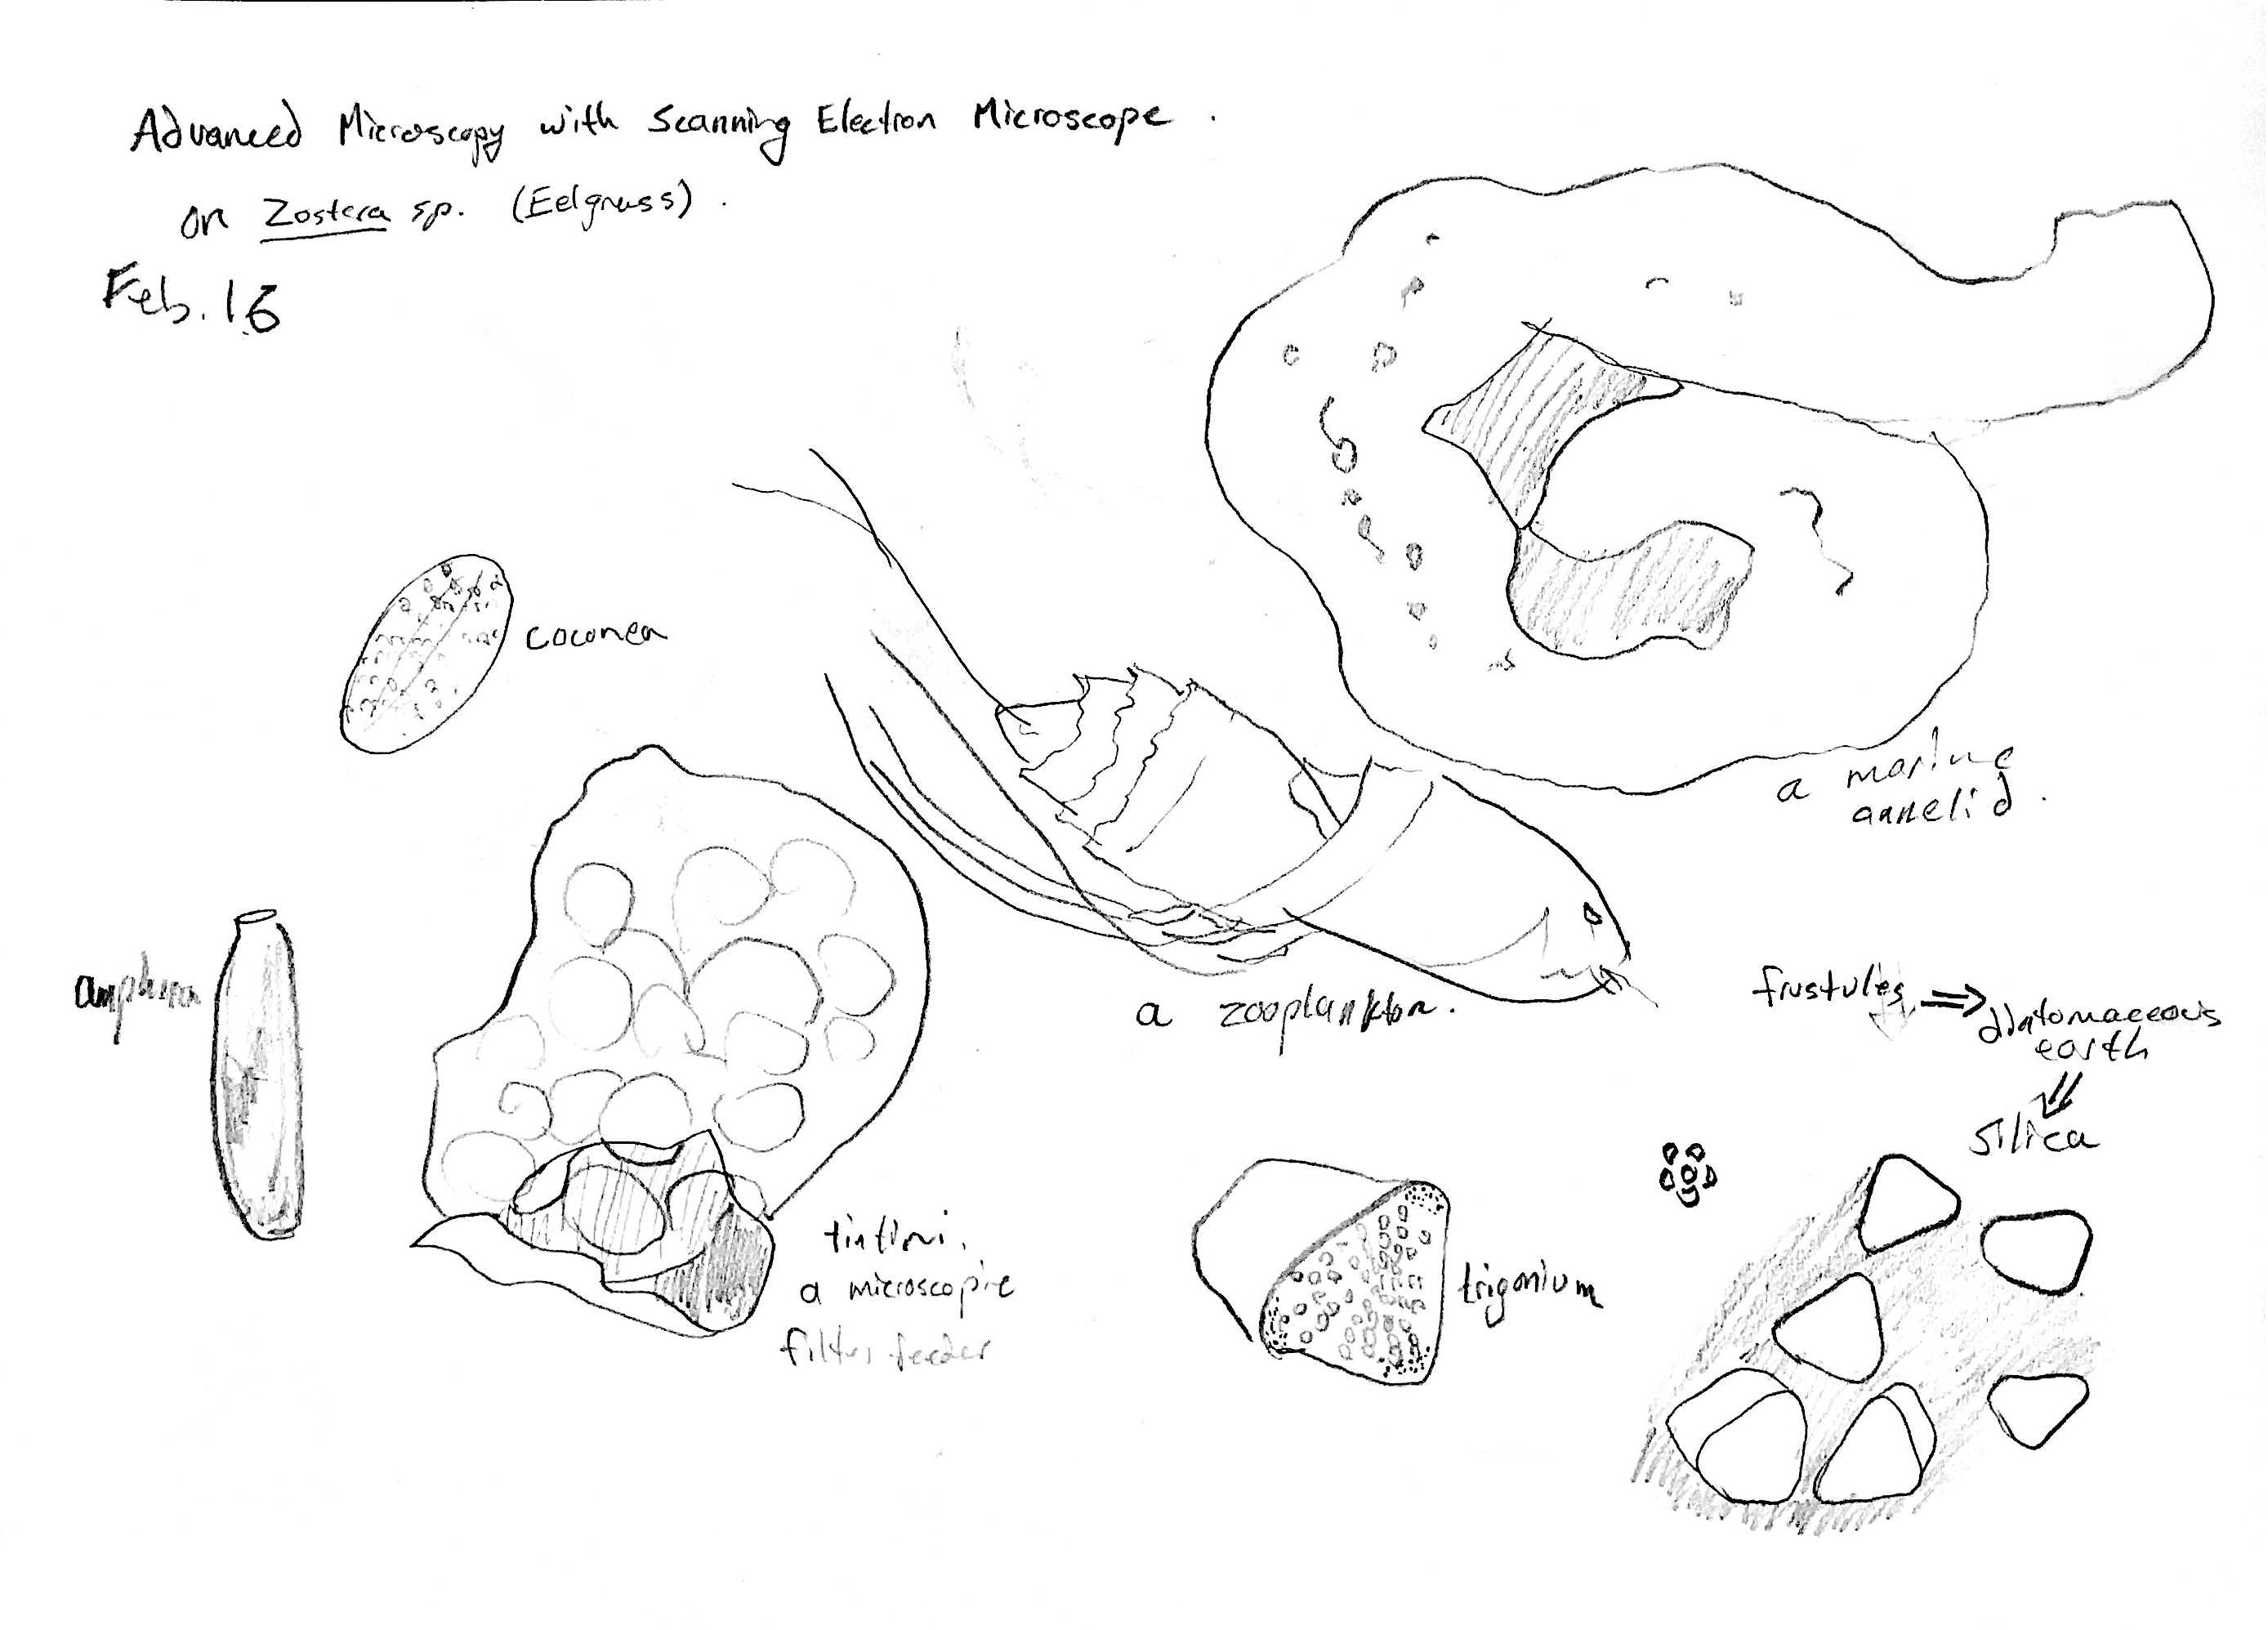 Advanced Microscopy with Scanning Electron Microscope.
on Zostera sp. (Eelgrass).
Feb. 16
coconea
a marine
annelid.
a zooplankton.
frustules ⇒
diatomaceous
earth
⇓
silica
a microscopic
filter feeder
trigonium